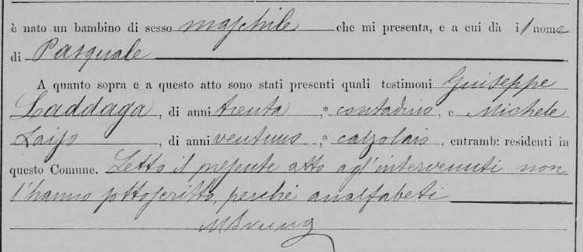 è nato un bambino di sesso maschile che mi presenta, e a cui dà il nome
di Pasquale
A quanto sopra e a questo atto sono stati presenti quali testimoni Giuseppe
Laddaga, di anni trenta, contadino, e Michele
di anni ventuno, calzolaio, entrambi residenti in
questo Comune. Letto il presente atto agl'intervenuti non
l'hanno sottoscritto, perché analfabeti